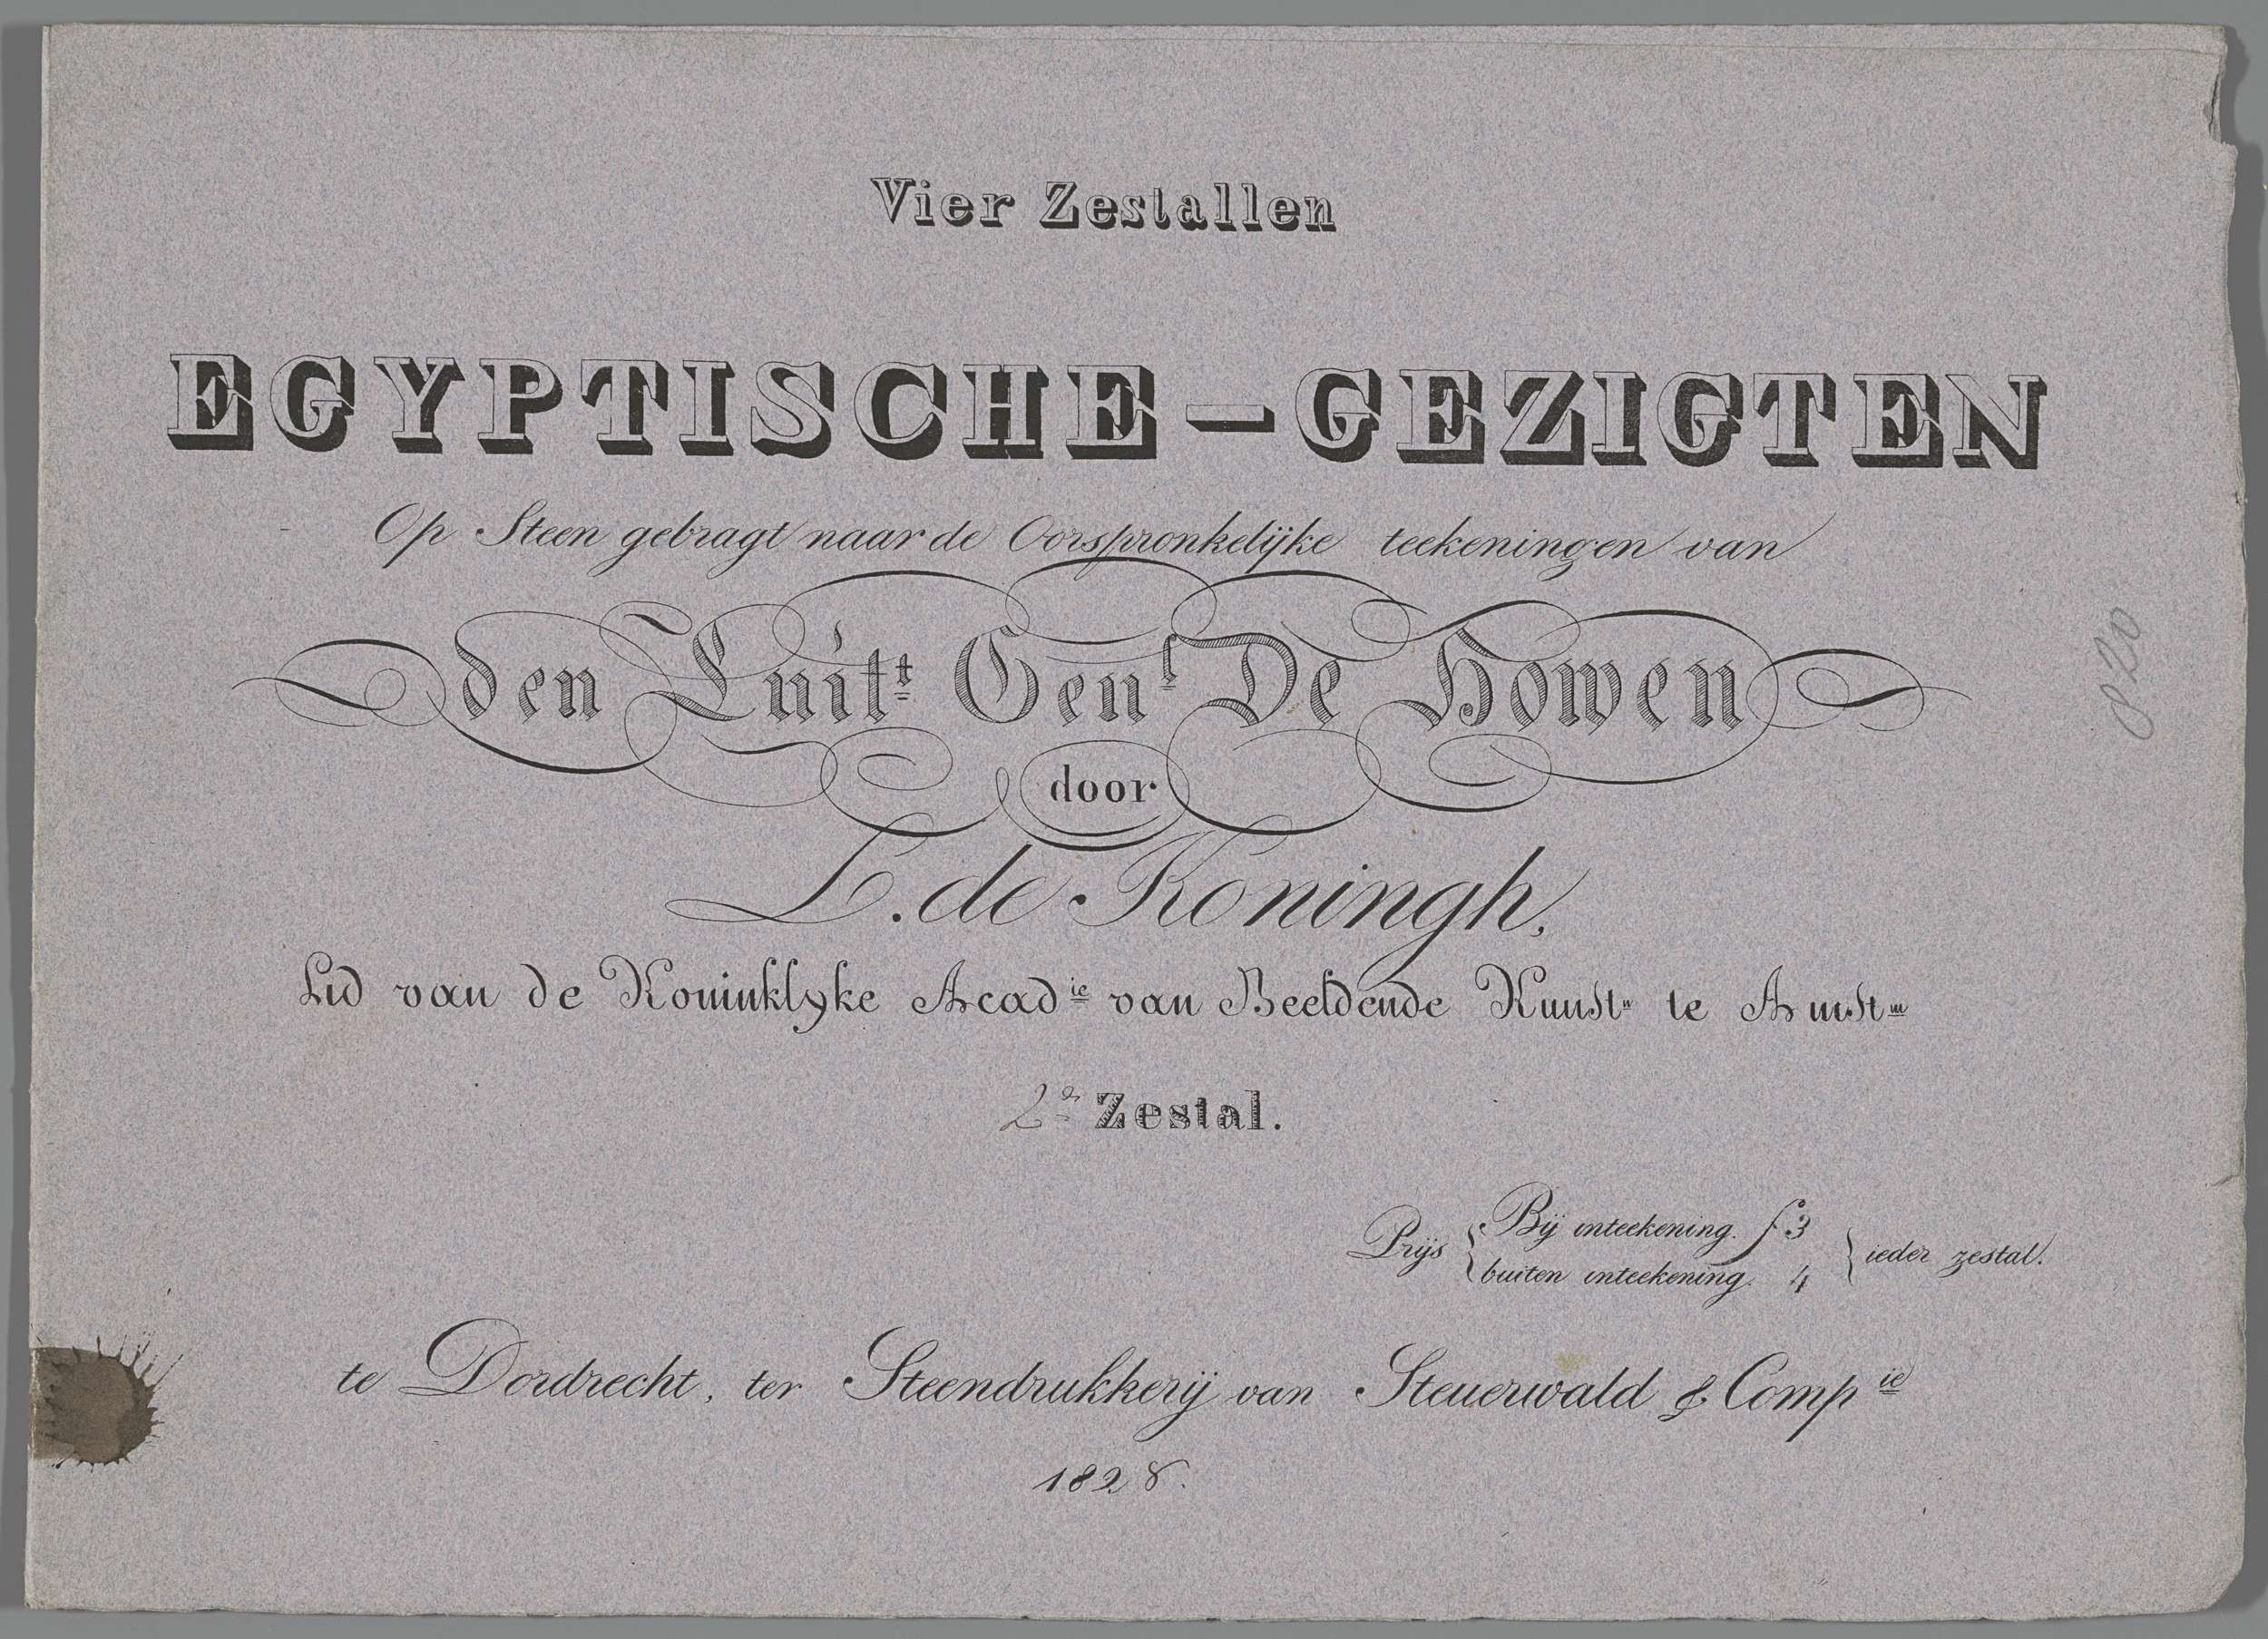 Vier Zestallen
EGYPTISCHE-GEZIGTEN
Op Steen gebragt naar de Oorspronkelijke teekeningen van
den Luit.t Gen.l De Howen
door
L. de Koningh,
Lid van de Koninklyke Acad.ie van Beeldende Kunst.n te Amst.m
2e Zestal.
Prijs { Bij inteekening. f 3 } ieder zestal.
buiten inteekening. 4
te Dordrecht, ter Steendrukkerij van Steuerwald & Comp.ie
1828.